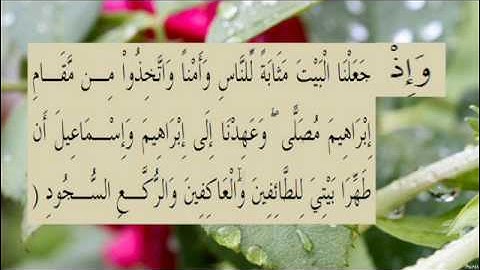 وَإِذْ جَعَلْنَا الْبَيْتَ مَثَابَةً لِّلنَّاسِ وَأَمْنًا وَاتَّخِذُواْ مِن مَّقَامِ
إِبْرَاهِيمَ مُصَلًّى ۖ وَعَهِدْنَا إِلَى إِبْرَاهِيمَ وَإِسْمَاعِيلَ أَن
طَهِّرَا بَيْتِيَ لِلطَّائِفِينَ وَالْعَاكِفِينَ وَالرُّكَّعِ السُّجُودِ (